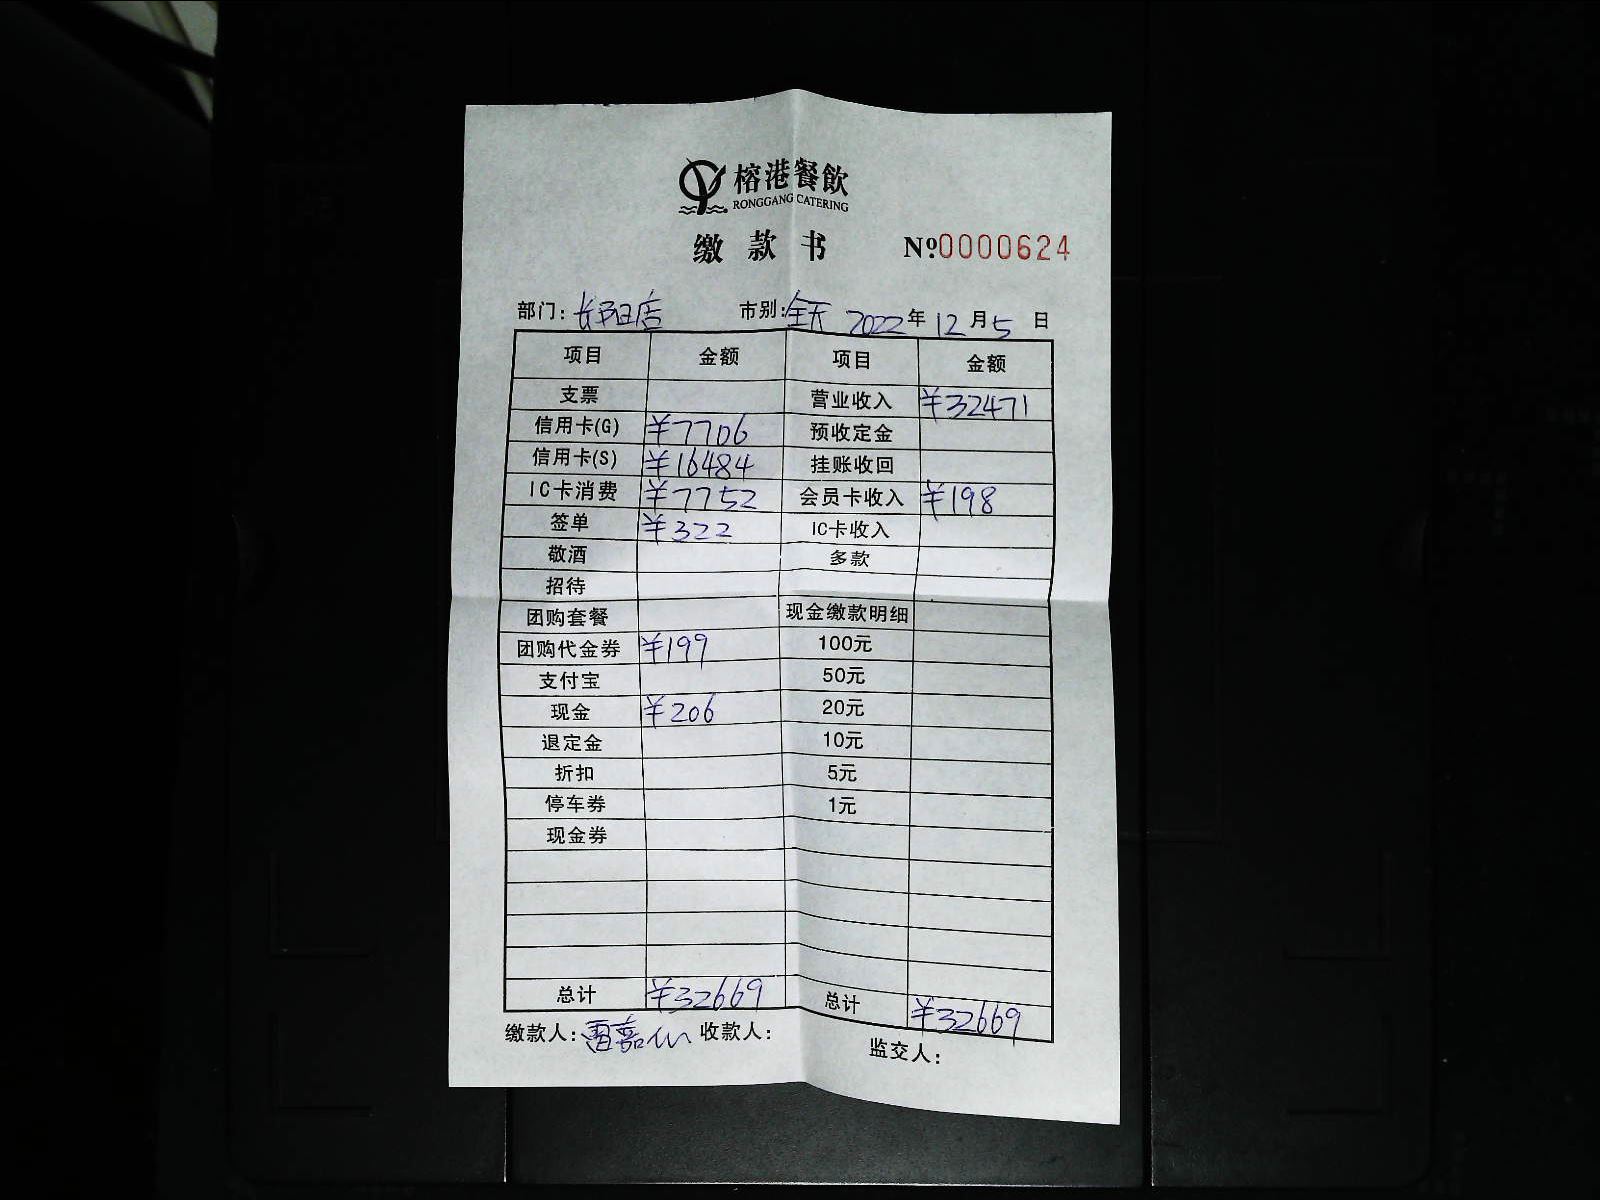 榕港餐飲
RONGGANG CATERING
缴款书 №0000624
部门：长阳店 市别：全天 2022年12月5日
项目 金额 项目 金额
支票 营业收入 ¥32471
信用卡(G) ¥7706 预收定金
信用卡(S) ¥16484 挂账收回
IC卡消费 ¥7752 会员卡收入 ¥198
签单 ¥322 IC卡收入
敬酒 多款
招待
团购套餐 现金缴款明细
团购代金券 ¥199 100元
支付宝 50元
现金 ¥206 20元
退定金 10元
折扣 5元
停车券 1元
现金券
总计 ¥32669 总计 ¥32669
缴款人：雷嘉 收款人： 监交人：